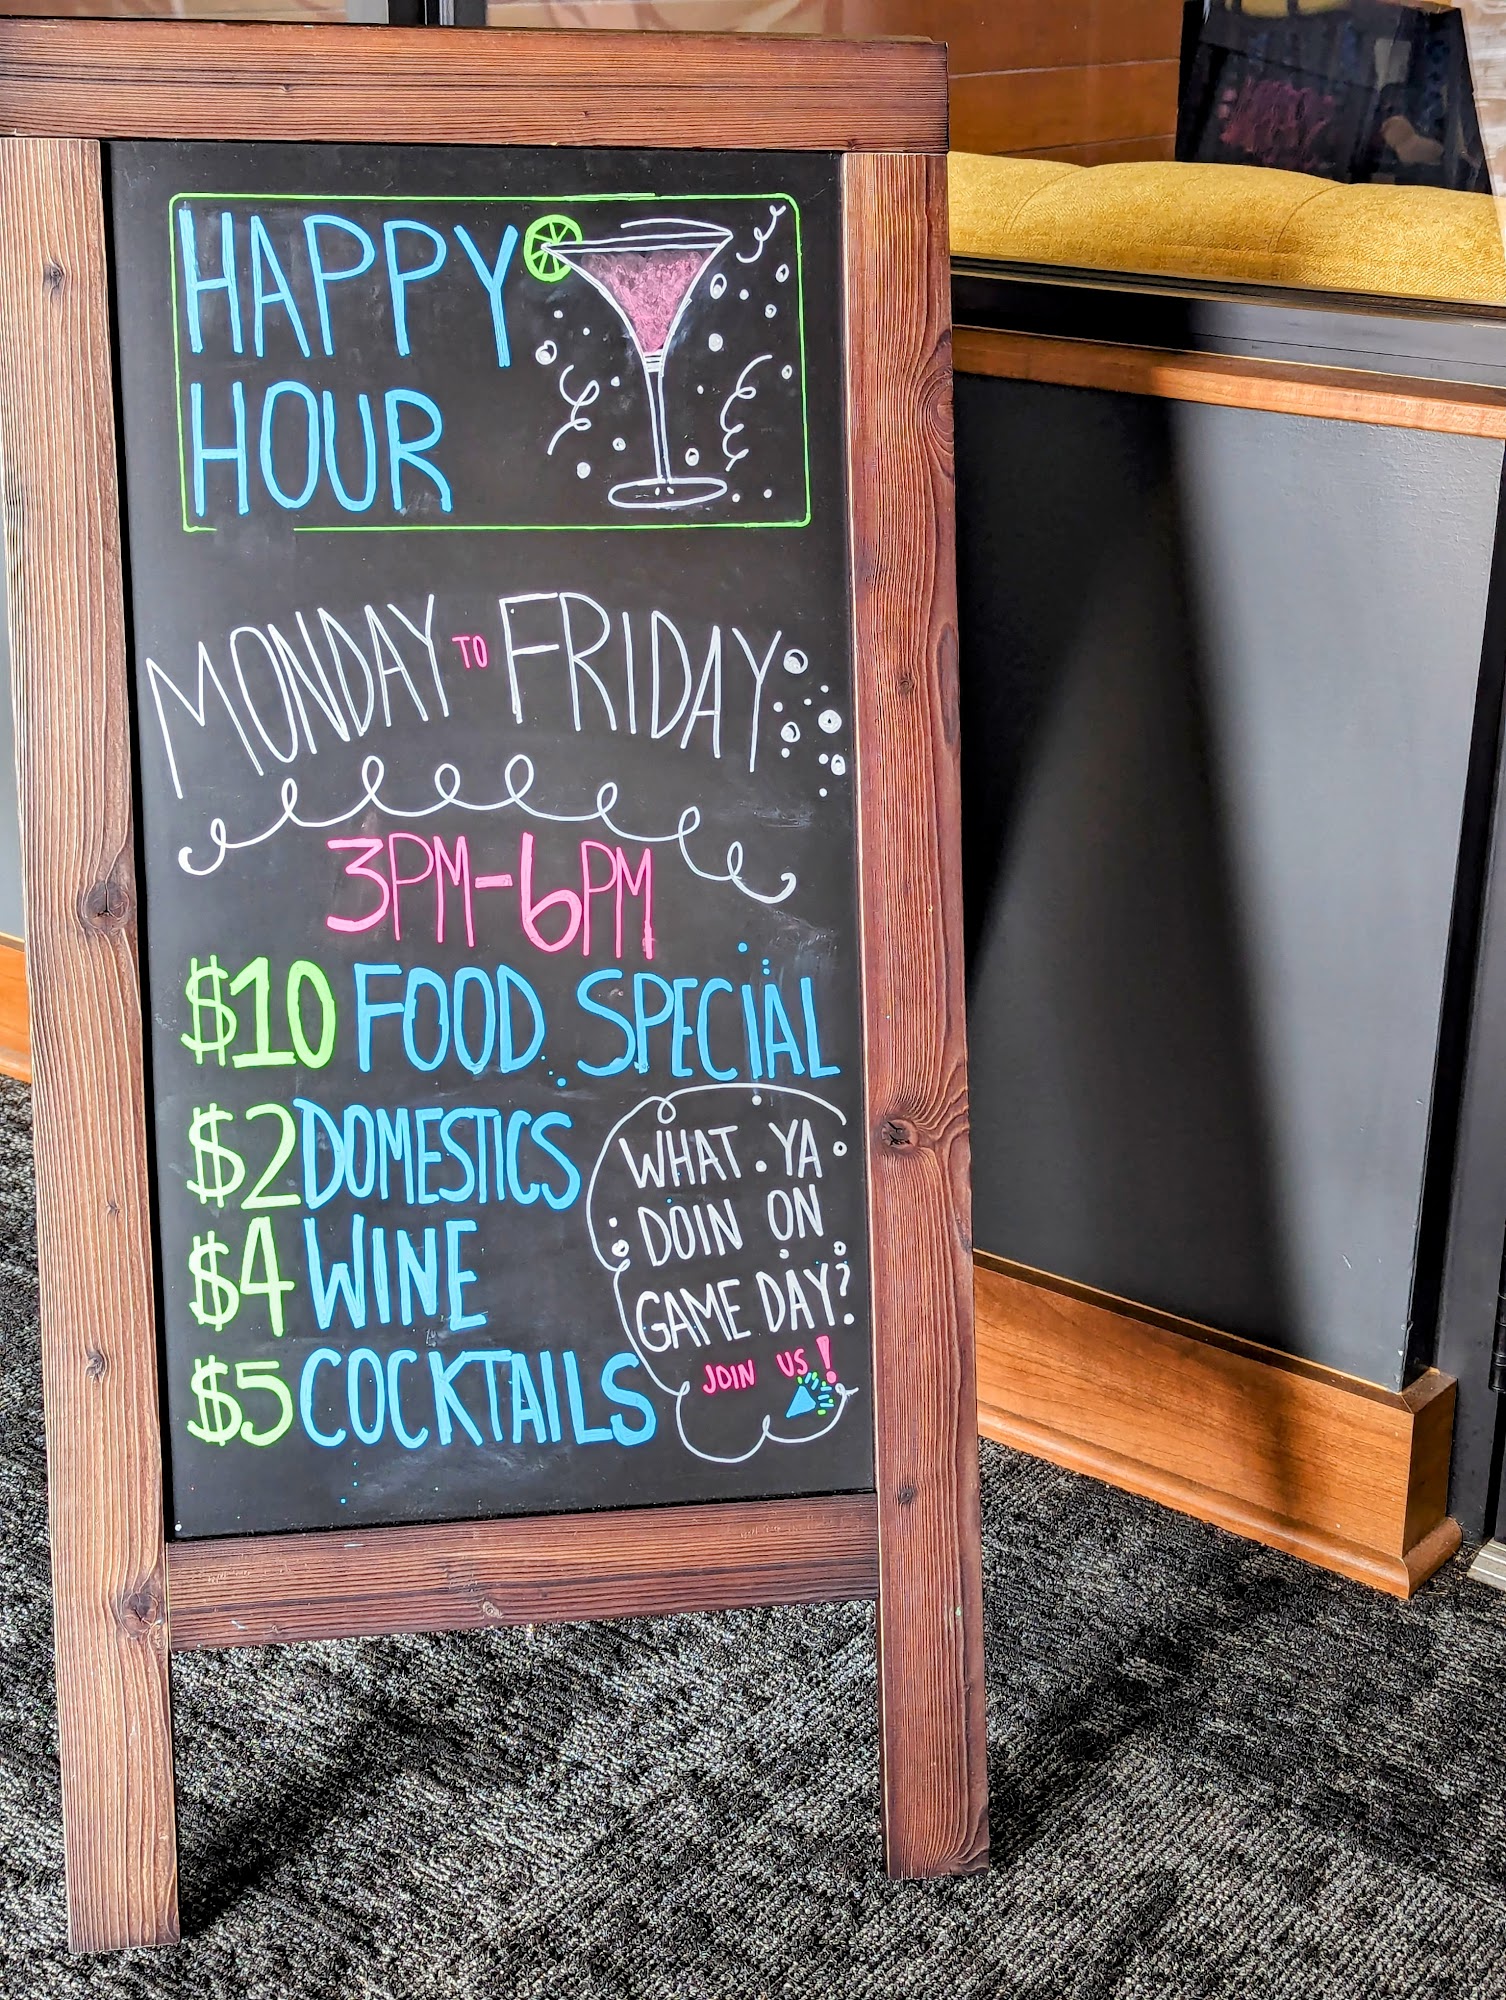 HAPPY
HOUR
MONDAY TO FRIDAY
3PM-6PM
$10 FOOD SPECIAL
$2 DOMESTICS
$4 WINE
$5 COCKTAILS
WHAT YA
DOIN ON
GAME DAY?
JOIN US!